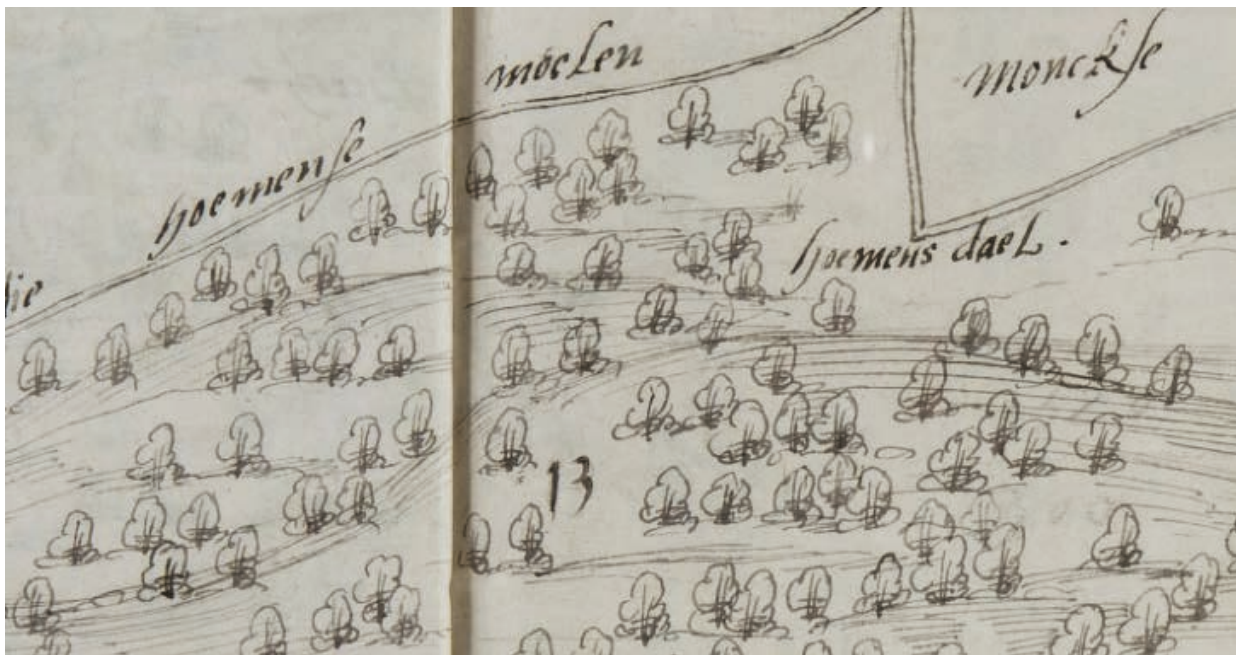 die hoemense moelen
monckse
hoemens dael.
13